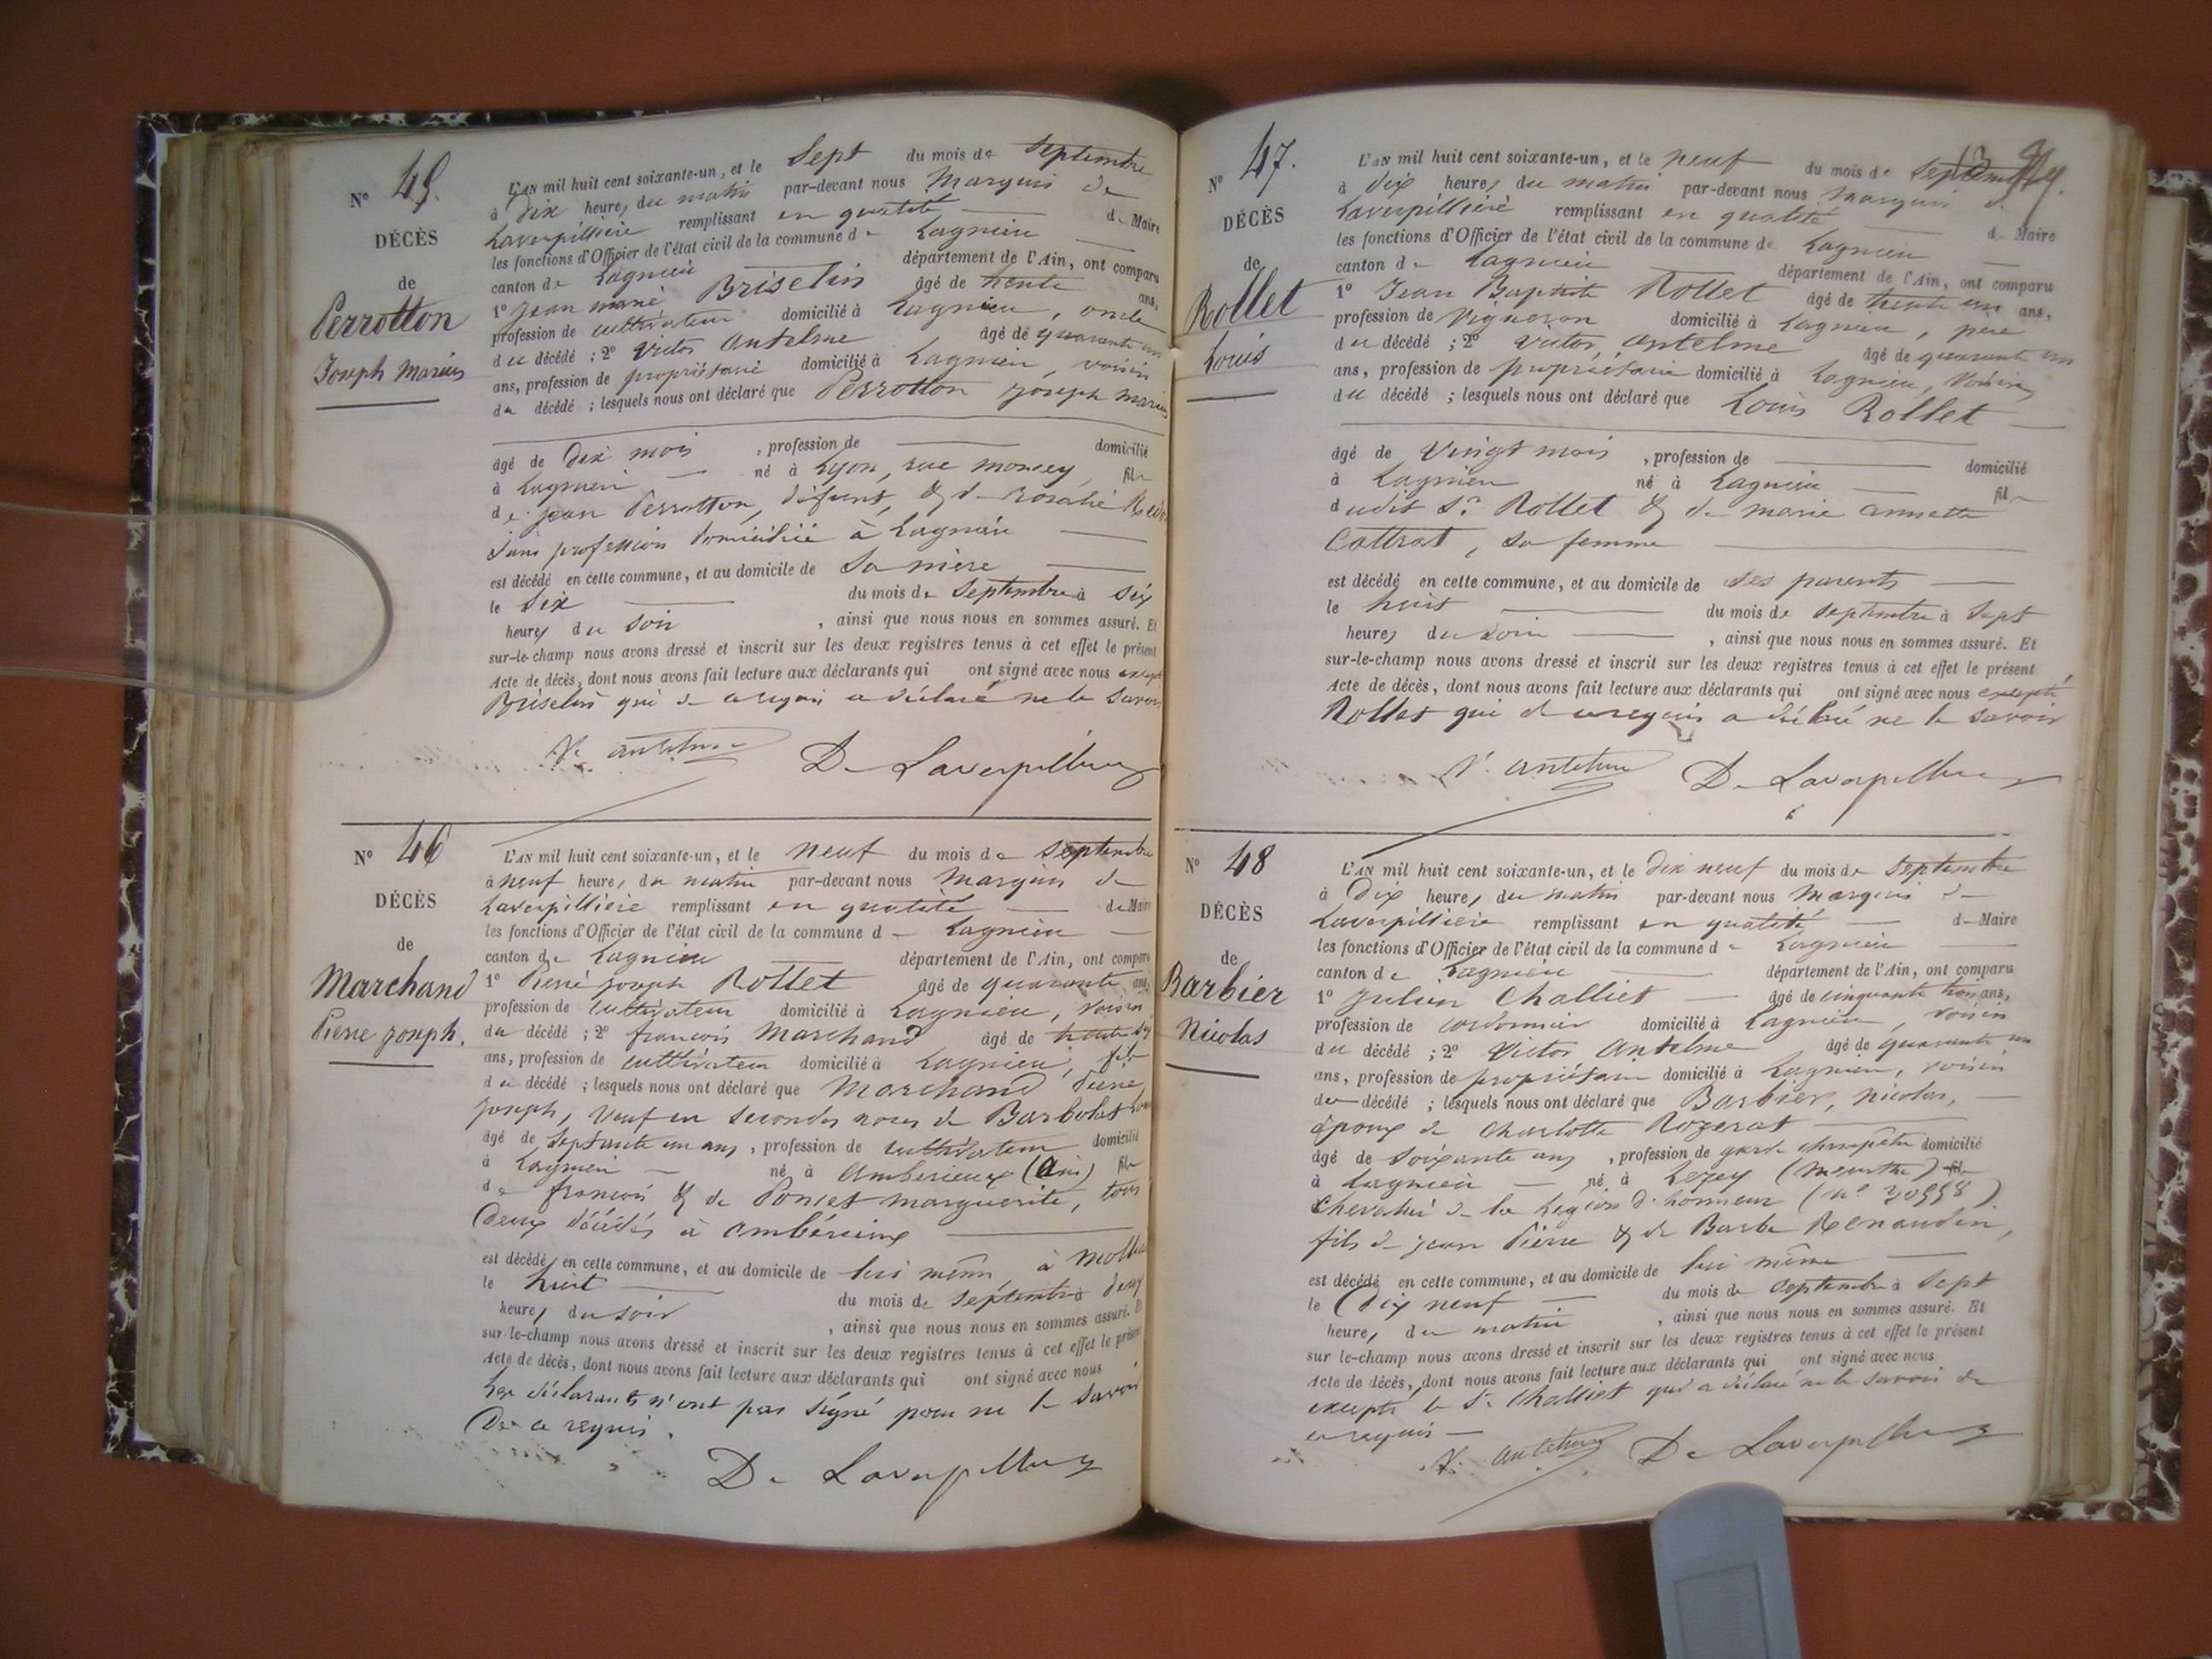 N° 45.
DÉCÈS
de
Perrotton
Joseph Marius
L'AN mil huit cent soixante-un, et le Sept du mois de Septembre
à Dix heures du matin par-devant nous Marquis de
Laverpillière remplissant en qualité de Maire
les fonctions d'Officier de l'état civil de la commune de Lagnieu
canton de Lagnieu département de l'Ain, ont comparu
1° Jean marie Briselin âgé de trente ans,
profession de cultivateur domicilié à Lagnieu, oncle
du décédé ; 2° Victor Antelme âgé de quarante un
ans, profession de propriétaire domicilié à Lagnieu, voisin
du décédé ; lesquels nous ont déclaré que Perrotton joseph marius
âgé de dix mois , profession de domicilié
à Lagnieu né à Lyon, rue moncey fils
de jean Perrotton, défunt, & de Rosalie
sans profession domiciliée à Lagnieu
est décédé en cette commune, et au domicile de Sa mère
le Six du mois de Septembre à six
heures du Soir , ainsi que nous nous en sommes assuré. Et
sur-le-champ nous avons dressé et inscrit sur les deux registres tenus à cet effet le présent
Acte de décès, dont nous avons fait lecture aux déclarants qui ont signé avec nous excepté
Briselin qui de ce requis a déclaré ne le Savoir
V. antelme De Laverpillière
N° 46
DÉCÈS
de
Marchand
Pierre joseph.
L'AN mil huit cent soixante-un, et le neuf du mois de Septembre
à neuf heures du matin par-devant nous Marquis de
Laverpillière remplissant en qualité de Maire
les fonctions d'Officier de l'état civil de la commune de Lagnieu
canton de Lagnieu département de l'Ain, ont comparu
1° Pierre joseph Rollet âgé de quarante ans,
profession de cultivateur domicilié à Lagnieu, voisin
du décédé ; 2° françois Marchand âgé de trente six
ans, profession de cultivateur domicilié à Lagnieu, fils
du décédé ; lesquels nous ont déclaré que Marchand Pierre
joseph, veuf en secondes noces de Barbolat
âgé de septante un ans, profession de cultivateur domicilié
à Lagnieu né à Ambérieux (Ain) fils
de françois & de Poncet marguerite, tous
Deux décédés à ambérieux
est décédé en cette commune, et au domicile de lui même, à
le huit du mois de Septembre à deux
heures du soir , ainsi que nous nous en sommes assuré. Et
sur-le-champ nous avons dressé et inscrit sur les deux registres tenus à cet effet le présent
Acte de décès, dont nous avons fait lecture aux déclarants qui ont signé avec nous
Les déclarants n'ont pas signé pour ne le savoir
De ce requis.
De Laverpillière
N° 47.
DÉCÈS
de
Rollet
Louis
L'AN mil huit cent soixante-un, et le neuf du mois de Septembre
à dix heures du matin par-devant nous Marquis de
Laverpillière remplissant en qualité de Maire
les fonctions d'Officier de l'état civil de la commune de Lagnieu
canton de Lagnieu département de l'Ain, ont comparu
1° Jean Baptiste Rollet âgé de trente un ans,
profession de Vigneron domicilié à Lagnieu, père
du décédé ; 2° Victor, Antelme âgé de quarante un
ans, profession de propriétaire domicilié à Lagnieu, Voisin
du décédé ; lesquels nous ont déclaré que Louis Rollet
âgé de Vingt mois , profession de domicilié
à Lagnieu né à Lagnieu fils
dudit Sr Rollet & de marie annette
Cottrat, sa femme
est décédé en cette commune, et au domicile de Ses parents
le huit du mois de septembre à Sept
heures du soir , ainsi que nous nous en sommes assuré. Et
sur-le-champ nous avons dressé et inscrit sur les deux registres tenus à cet effet le présent
Acte de décès, dont nous avons fait lecture aux déclarants qui ont signé avec nous excepté
Rollet qui de ce requis a déclaré ne le savoir
V. antelme De Laverpillière
N° 48
DÉCÈS
de
Barbier
Nicolas
L'AN mil huit cent soixante-un, et le Dix neuf du mois de Septembre
à Dix heures du matin par-devant nous Marquis de
Laverpillière remplissant en qualité de Maire
les fonctions d'Officier de l'état civil de la commune de Lagnieu
canton de Lagnieu département de l'Ain, ont comparu
1° Julien Challiet âgé de cinquante trois ans,
profession de cordonnier domicilié à Lagnieu, voisin
du décédé ; 2° Victor Antelme âgé de quarante un
ans, profession de propriétaire domicilié à Lagnieu, voisin
du décédé ; lesquels nous ont déclaré que Barbier, Nicolas,
époux de Charlotte Rozerat
âgé de soixante ans , profession de garde champêtre domicilié
à Lagnieu né à Lezey (Meurthe) fils
Chevalier de la Légion d'honneur
fils de jean Pierre & de Barbe Renaudin,
est décédé en cette commune, et au domicile de lui même
le Dix neuf du mois de Septembre à Sept
heures du matin , ainsi que nous nous en sommes assuré. Et
sur le-champ nous avons dressé et inscrit sur les deux registres tenus à cet effet le présent
Acte de décès, dont nous avons fait lecture aux déclarants qui ont signé avec nous
excepté le Sr Challiet qui a déclaré ne le savoir de
ce requis
V. antelme De Laverpillière